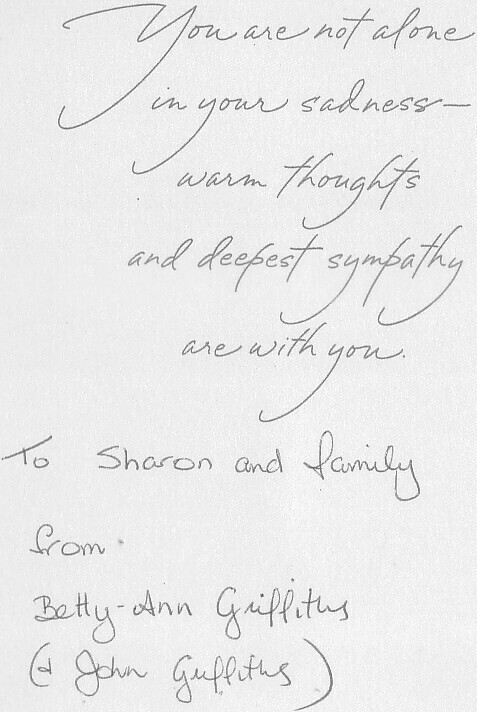 You are not alone
in your sadness—
warm thoughts
and deepest sympathy
are with you.
To Sharon and family
from
Betty-Ann Griffiths
(& John Griffiths)